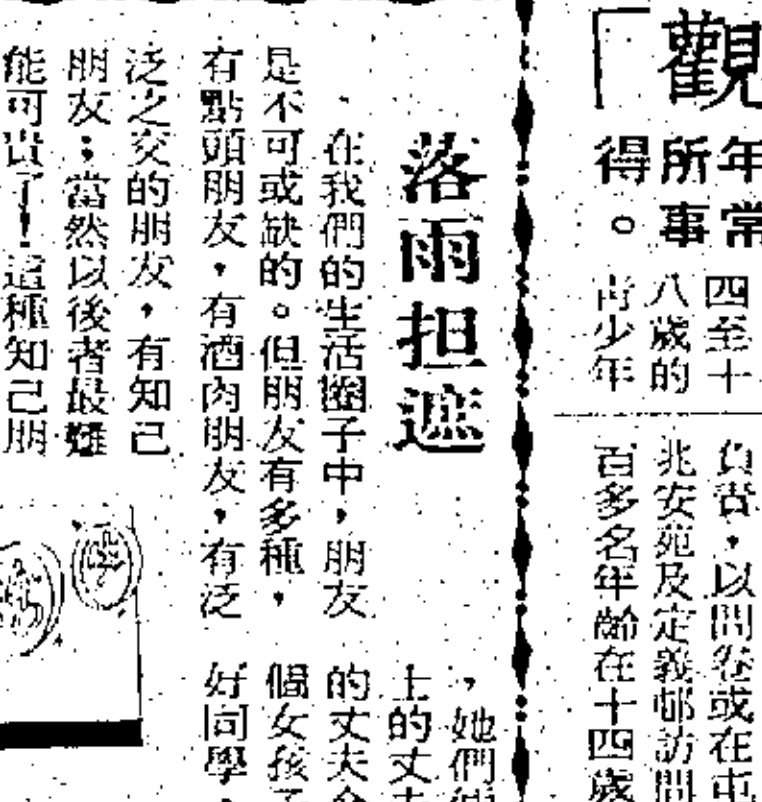 「觀
年常
所事
得。
四至十
八歲的
青少年
負責，以問卷或在屯
兆安苑及定義邨訪問
百多名年齡在十四歲
落雨担遮
在我們的生活圈子中，朋友
是不可或缺的。但朋友有多種，
有點頭朋友，有酒肉朋友，有泛
泛之交的朋友，有知己
朋友；當然以後者最難
能可貴了！這種知己朋
，她們
上的丈夫
的丈夫
個女孩子
好同學，